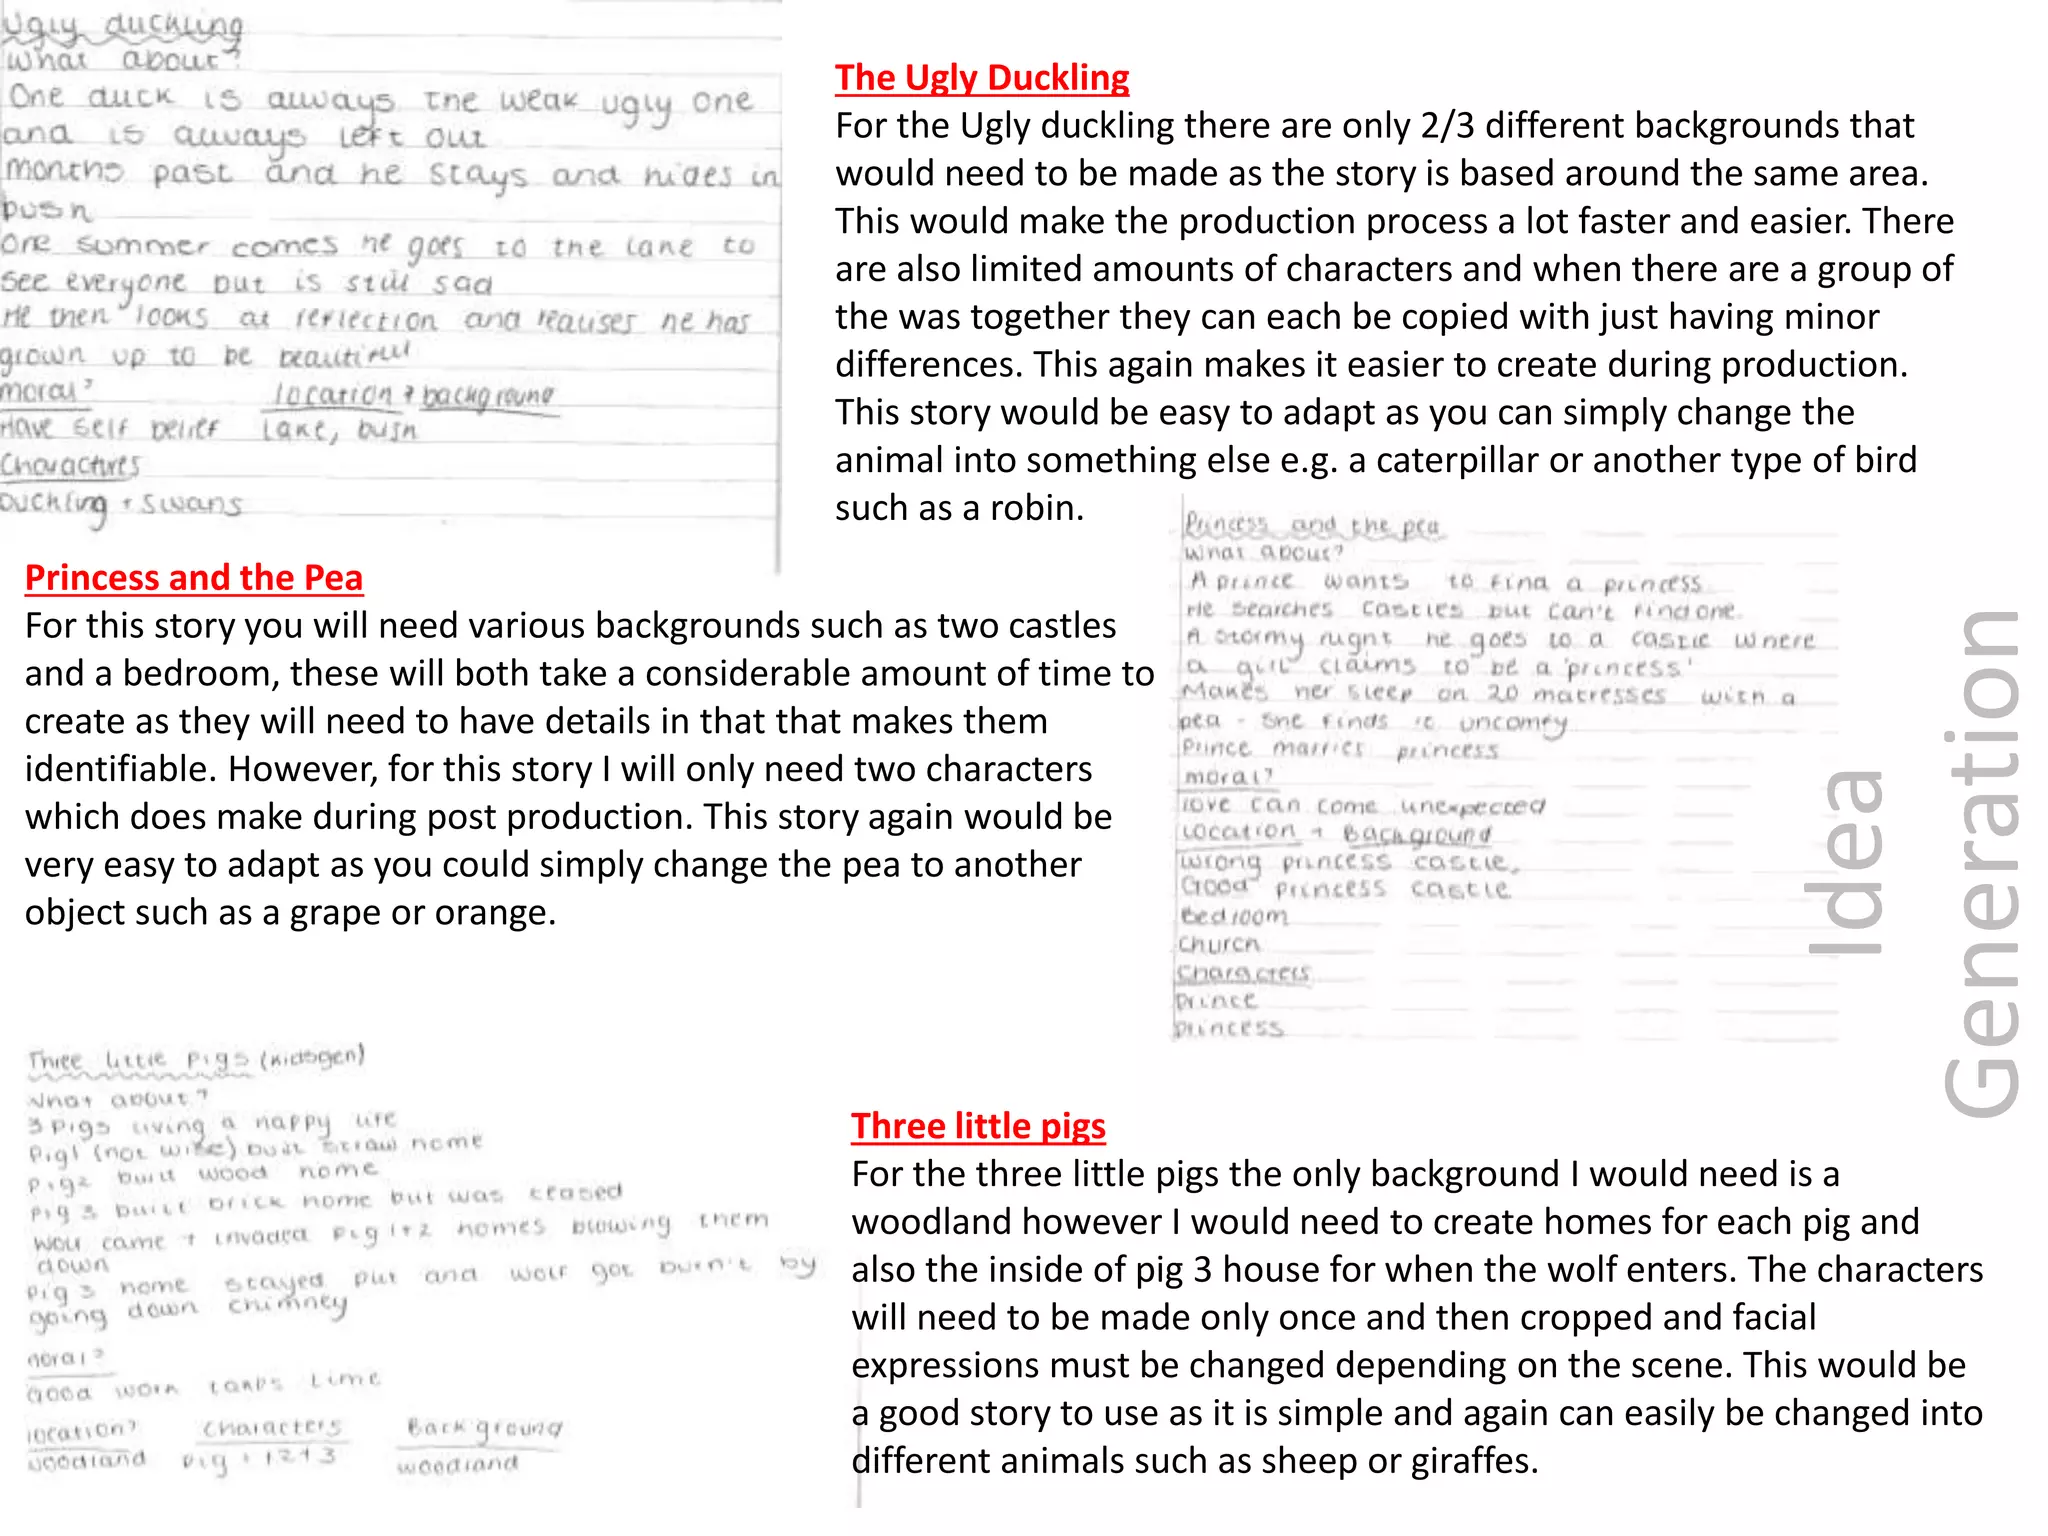 Ugly duckling
What about?
One duck is always the weak ugly one
and is always left out
Months past and he stays and hides in
bush
One summer comes he goes to the lake to
see everyone but is still sad
He then looks at reflection and realises he has
grown up to be beautiful
moral?
location + background
Have self belief
Lake, bush
Charactures
Duckling + Swans
The Ugly Duckling
For the Ugly duckling there are only 2/3 different backgrounds that
would need to be made as the story is based around the same area.
This would make the production process a lot faster and easier. There
are also limited amounts of characters and when there are a group of
the was together they can each be copied with just having minor
differences. This again makes it easier to create during production.
This story would be easy to adapt as you can simply change the
animal into something else e.g. a caterpillar or another type of bird
such as a robin.
Princess and the Pea
For this story you will need various backgrounds such as two castles
and a bedroom, these will both take a considerable amount of time to
create as they will need to have details in that that makes them
identifiable. However, for this story I will only need two characters
which does make during post production. This story again would be
very easy to adapt as you could simply change the pea to another
object such as a grape or orange.
Princess and the pea
What about?
A prince wants to find a princess
He searches castles but can't find one.
A stormy night he goes to a castle where
a girl claims to be a 'princess'
Makes her sleep on 20 matresses with a
pea - she finds it uncomfy
Prince marries princess
moral?
love can come unexpected
Location + Background
wrong princess castle,
Good princess castle
Bedroom
Church
Characters
Prince
princess
Idea
Generation
Three little pigs (kidsgen)
What about?
3 pigs living a happy life
Pig 1 (not wise) built straw home
Pig 2 built wood home
Pig 3 built brick home but was teased
Wolf came + invaded pig 1+2 homes blowing them
down
Pig 3 home stayed put and wolf got burn't by
going down chimney
moral?
Good work takes time
location?
Characters
Background
woodland
Pig 1 2 + 3
woodland
Three little pigs
For the three little pigs the only background I would need is a
woodland however I would need to create homes for each pig and
also the inside of pig 3 house for when the wolf enters. The characters
will need to be made only once and then cropped and facial
expressions must be changed depending on the scene. This would be
a good story to use as it is simple and again can easily be changed into
different animals such as sheep or giraffes.